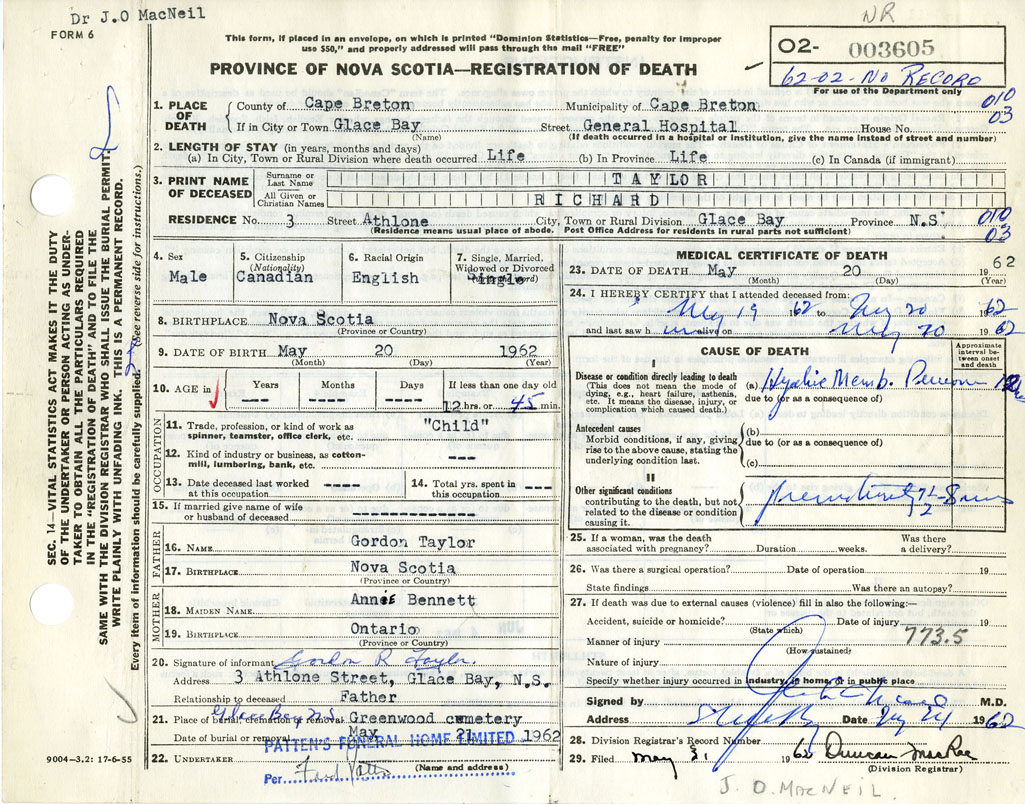 Dr J.O MacNeil
FORM 6
NR
This form, if placed in an envelope, on which is printed "Dominion Statistics—Free, penalty for improper
use $50," and properly addressed will pass through the mail "FREE"
O2- 003605
62-02-No RECORD
For use of the Department only
PROVINCE OF NOVA SCOTIA—REGISTRATION OF DEATH
010
03
1. PLACE OF DEATH
County of Cape Breton Municipality of Cape Breton
If in City or Town Glace Bay Street General Hospital House No.
(Name) (If death occurred in a hospital or institution, give the name instead of street and number)
2. LENGTH OF STAY (in years, months and days)
(a) In City, Town or Rural Division where death occurred Life (b) In Province Life (c) In Canada (if immigrant)
3. PRINT NAME OF DECEASED
Surname or Last Name TAYLOR
All Given or Christian Names RICHARD
RESIDENCE No. 3 Street Athlone City, Town or Rural Division Glace Bay Province N.S
(Residence means usual place of abode. Post Office Address for residents in rural parts not sufficient)
010
03
4. Sex
Male
5. Citizenship
(Nationality)
Canadian
6. Racial Origin
English
7. Single, Married,
Widowed or Divorced
Single
8. BIRTHPLACE Nova Scotia
(Province or Country)
9. DATE OF BIRTH May 20 1962
(Month) (Day) (Year)
10. AGE in
Years Months Days If less than one day old
---- ---- ---- 12 hrs. or 45 min.
OCCUPATION
11. Trade, profession, or kind of work as
spinner, teamster, office clerk, etc. "Child"
12. Kind of industry or business, as cotton-
mill, lumbering, bank, etc. ---
13. Date deceased last worked
at this occupation ----
14. Total yrs. spent in
this occupation ---
15. If married give name of wife
or husband of deceased
FATHER
16. NAME Gordon Taylor
17. BIRTHPLACE Nova Scotia
(Province or Country)
MOTHER
18. MAIDEN NAME Annie Bennett
19. BIRTHPLACE Ontario
(Province or Country)
20. Signature of informant Gordon R Taylor.
Address 3 Athlone Street, Glace Bay, N.S.
Relationship to deceased Father
Glace Bay N.S
21. Place of burial, cremation or removal Greenwood cemetery
Date of burial or removal May 21 1962
PATTEN'S FUNERAL HOME LIMITED
22. UNDERTAKER
Per
(Name and address)
9004—3.2: 17-6-55
MEDICAL CERTIFICATE OF DEATH
23. DATE OF DEATH May 20 1962
(Month) (Day) (Year)
24. I HEREBY CERTIFY that I attended deceased from:
May 19 1962 to May 20 1962
and last saw h im alive on May 20 1962
CAUSE OF DEATH
Approximate
interval be-
tween onset
and death
I
Disease or condition directly leading to death
(This does not mean the mode of
dying, e.g., heart failure, asthenia,
etc. It means the disease, injury, or
complication which caused death.)
(a) Hyaline Memb.
due to (or as a consequence of)
Antecedent causes
Morbid conditions, if any, giving
rise to the above cause, stating the
underlying condition last.
(b)
due to (or as a consequence of)
(c)
II
Other significant conditions
contributing to the death, but not
related to the disease or condition
causing it.
Prematurity 7½-8
25. If a woman, was the death
associated with pregnancy? Duration weeks. Was there
a delivery?
26. Was there a surgical operation? Date of operation 19
State findings Was there an autopsy?
27. If death was due to external causes (violence) fill in also the following:—
Accident, suicide or homicide? Date of injury 19
(State which)
773.5
Manner of injury
(How sustained)
Nature of injury
Specify whether injury occurred in industry, in home, or in public place
Signed by M.D.
Address Date May 24 1962
28. Division Registrar's Record Number
29. Filed May 31 1962 Duncan MacRae
(Division Registrar)
J. O. MACNEIL
SEC. 14—VITAL STATISTICS ACT MAKES IT THE DUTY
OF THE UNDERTAKER OR PERSON ACTING AS UNDER-
TAKER TO OBTAIN ALL THE PARTICULARS REQUIRED
IN THE "REGISTRATION OF DEATH" AND TO FILE THE
SAME WITH THE DIVISION REGISTRAR WHO SHALL ISSUE THE BURIAL PERMIT.
WRITE PLAINLY WITH UNFADING INK. THIS IS A PERMANENT RECORD.
Every item of information should be carefully supplied. (See reverse side for instructions.)